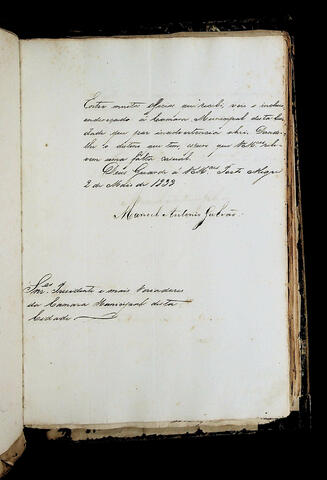 Entre muitos officios que recebi, veio o incluso
endereçado á Camara Municipal desta Ci-
dade que por inadvertencia abri. Dando-
lhe o destino que tem espero que VV.Mces
uma falta casual.
Deus Guarde a VV.Mces Porto Alegre
2 de Maio de 1833
Manoel Antonio Galvão
Snres. Presidente e mais Vereadores
da Camara Municipal desta
Cidade